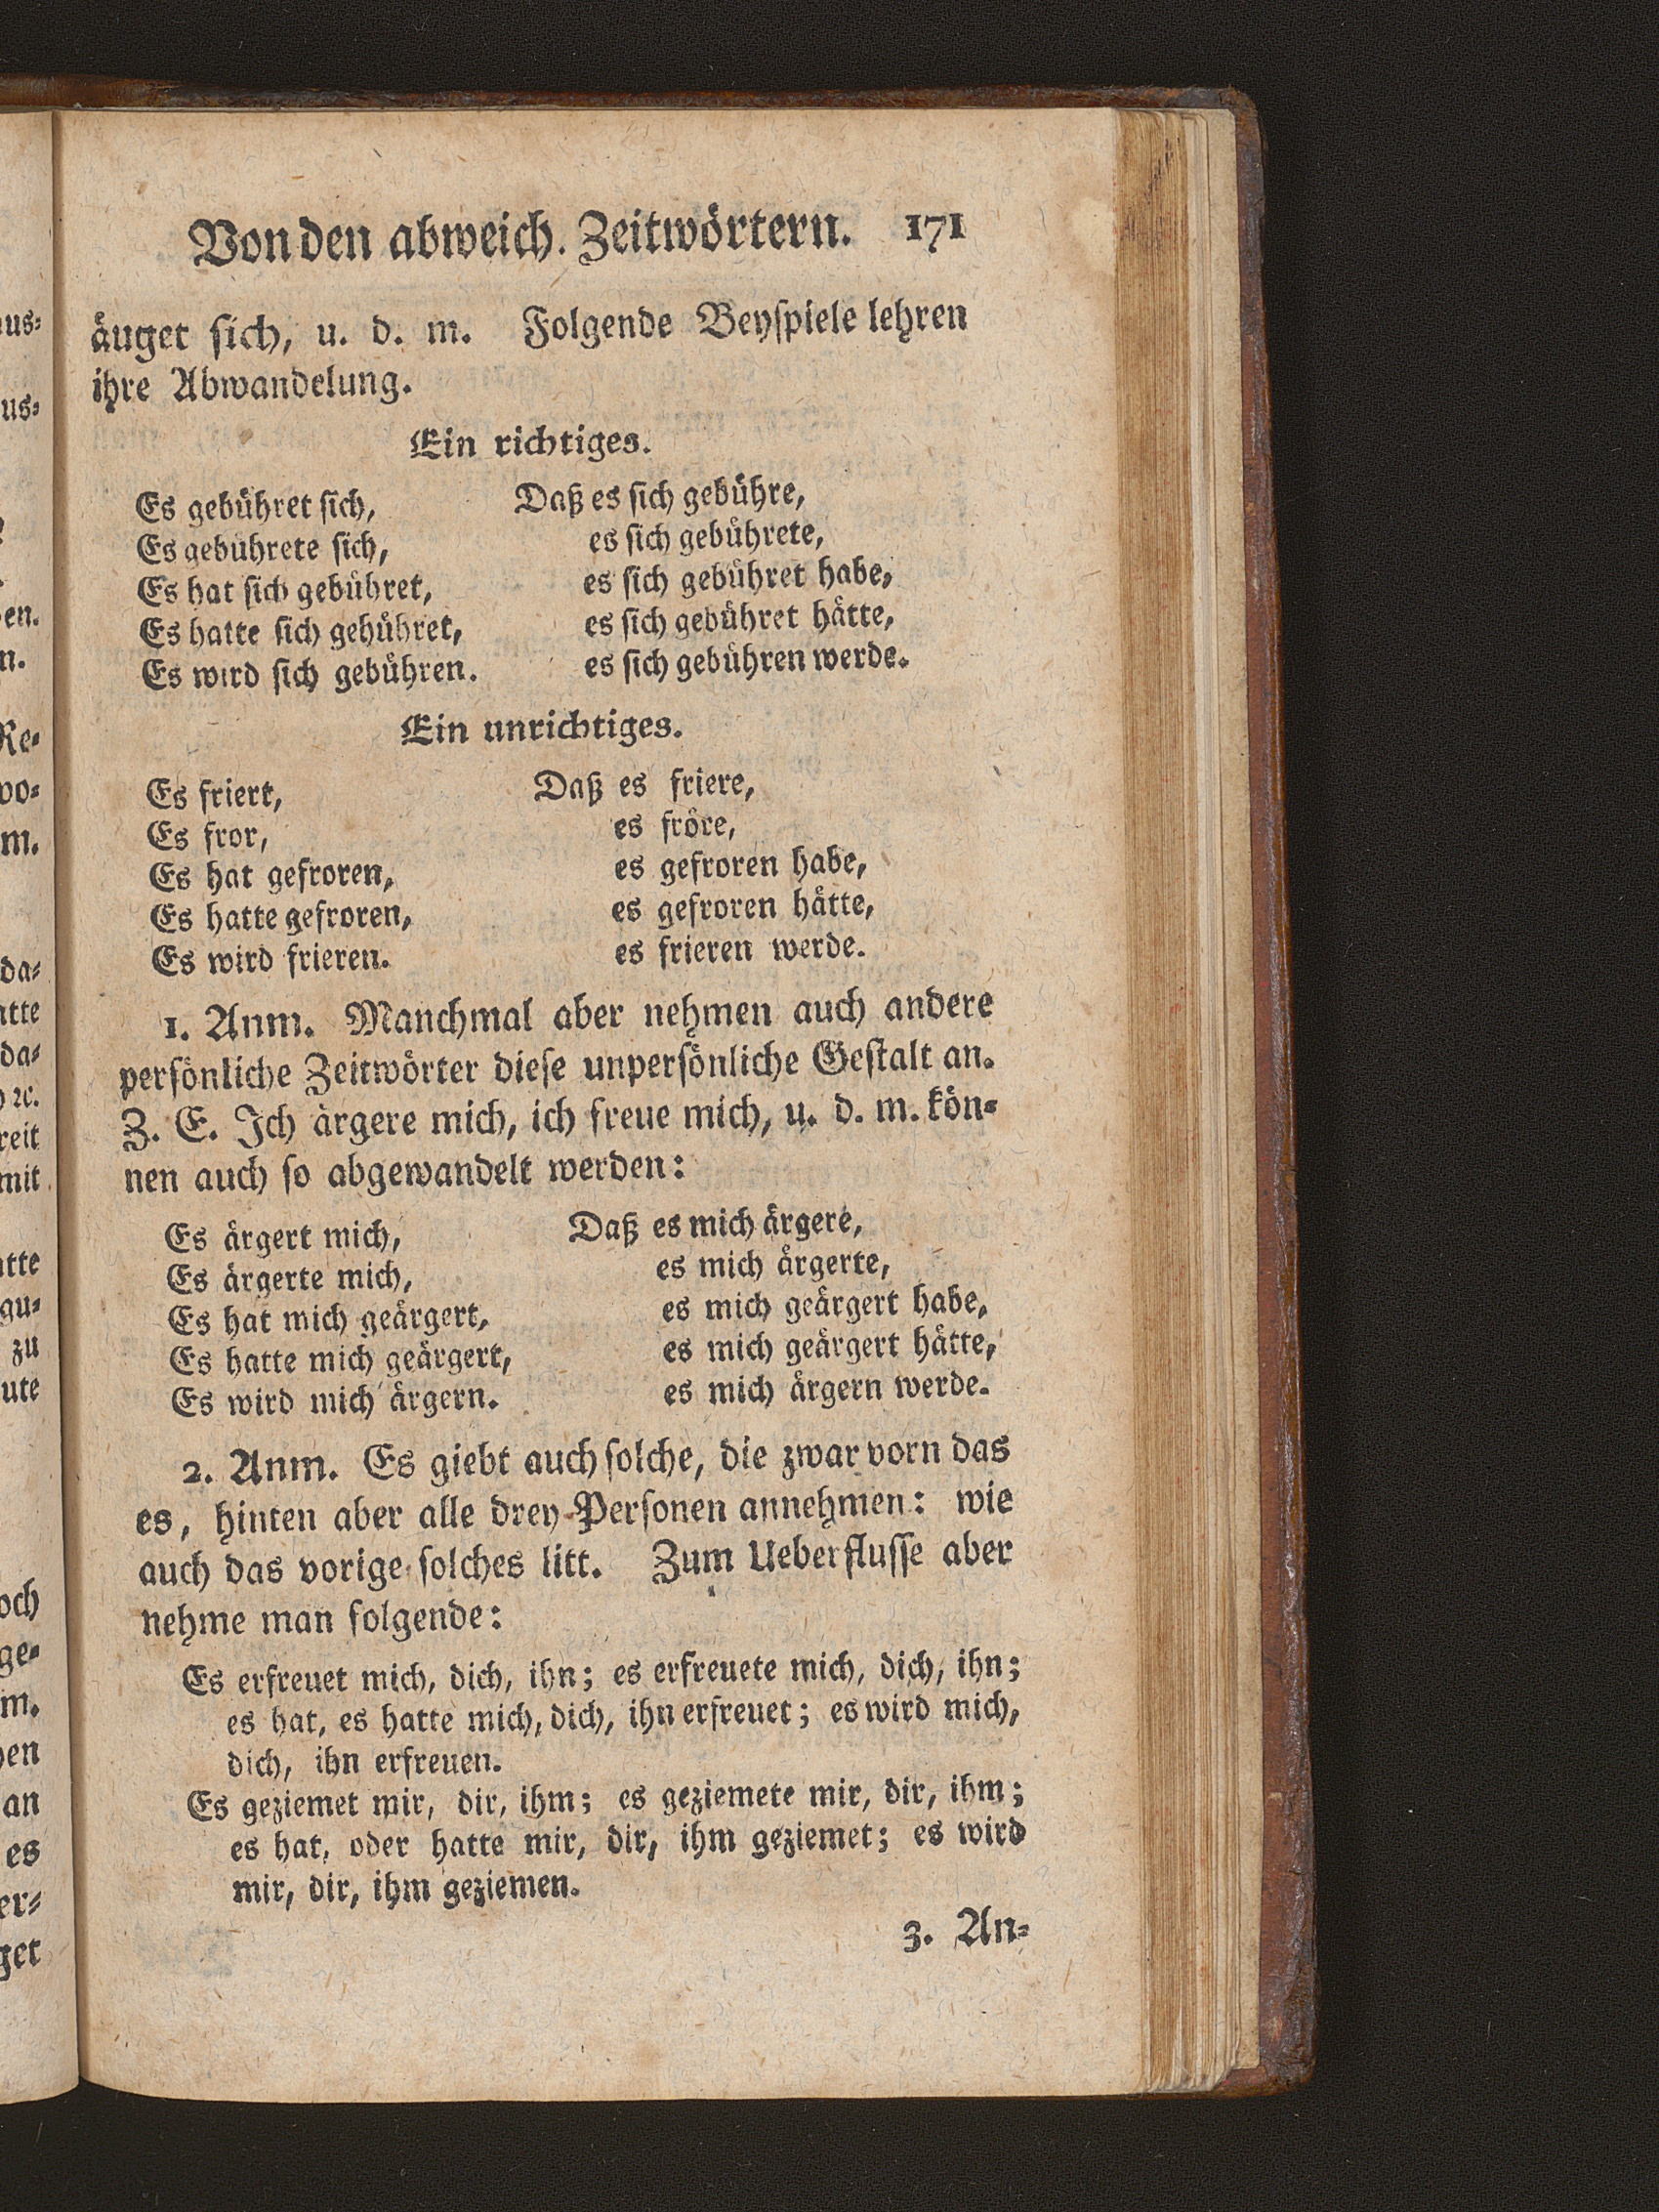 Von den abweich. Zeitwörtern. 171
äuget sich, u. d. m. Folgende Beyspiele lehren
ihre Abwandelung.
Ein richtiges.
Es gebühret sich, Daß es sich gebühre,
Es gebuhrete sich, es sich gebührete,
Es hat sich gebühret, es sich gebühret habe,
Es hatte sich gebühret, es sich gebühret hätte,
Es wird sich gebühren. es sich gebühren werde.
Ein unrichtiges.
Es friert, Daß es friere,
Es fror, es fröre,
Es hat gefroren, es gefroren habe,
Es hatte gefroren, es gefroren hätte,
Es wird frieren. es frieren werde.
1. Anm. Manchmal aber nehmen auch andere
persönliche Zeitwörter diese unpersönliche Gestalt an.
Z. E. Ich ärgere mich, ich freue mich, u. d. m. kön-
nen auch so abgewandelt werden:
Es ärgert mich, Daß es mich ärgere,
Es ärgerte mich, es mich ärgerte,
Es hat mich geärgert, es mich geärgert habe,
Es hatte mich geärgert, es mich geärgert hätte,
Es wird mich ärgern. es mich ärgern werde.
2. Anm. Es giebt auch solche, die zwar vorn das
es, hinten aber alle drey Personen annehmen: wie
auch das vorige solches litt. Zum Ueberflusse aber
nehme man folgende:
Es erfreuet mich, dich, ihn; es erfreuete mich, dich, ihn;
es hat, es hatte mich, dich, ihn erfreuet; es wird mich,
dich, ihn erfreuen.
Es geziemet mir, dir, ihm; es geziemete mir, dir, ihm;
es hat, oder hatte mir, dir, ihm geziemet; es wird
mir, dir, ihm geziemen.
3. An-